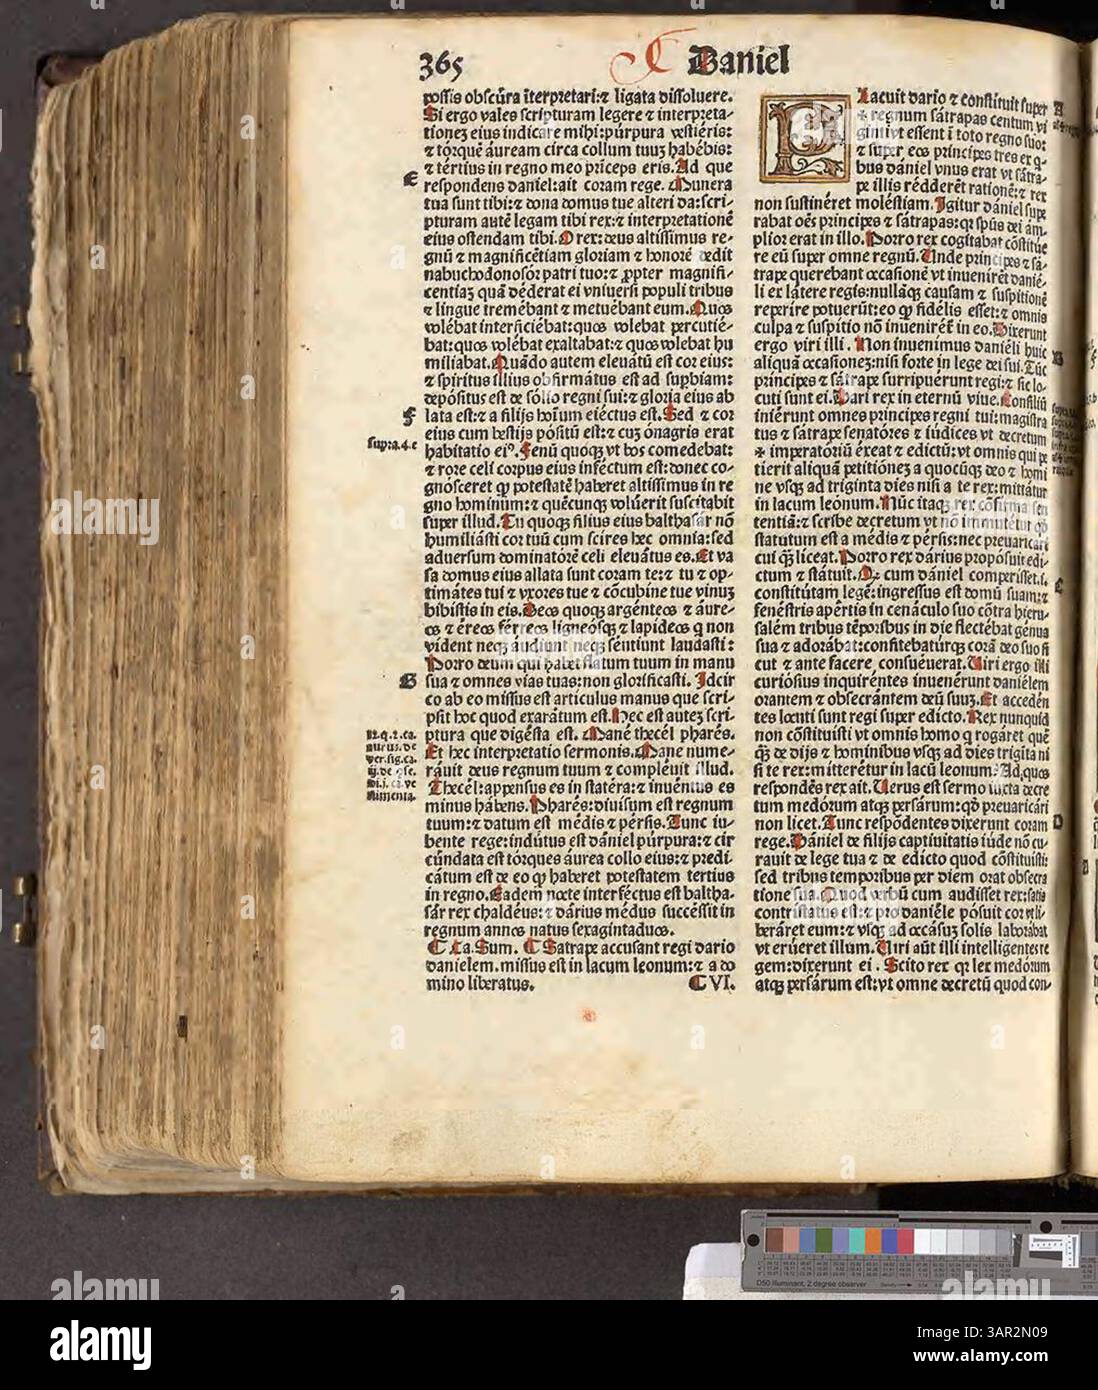 365
Daniel
possis obscũra ĩterpretari:⁊ ligata dissoluere.
Si ergo vales scripturam legere ⁊ interpreta-
tionez eius indicare mihi:púrpura vestiéris:
⁊ tórquē áuream circa collum tuuz habébis:
⁊ tértius in regno meo prĩceps eris. Ad que
E
respondens daniel:ait coram rege. Munera
tua sunt tibi:⁊ dona domus tue alteri da:scri-
pturam autē legam tibi rex:⁊ interpretationē
eius ostendam tibi. O rex:deus altissimus re-
gnũ ⁊ magnificētiam gloriam ⁊ honorē dedit
nabuchodonosór patri tuo:⁊ ꝓpter magnifi-
centiaz quā déderat ei vniuersi populi tribus
⁊ lingue tremébant ⁊ metuébant eum. Quos
volébat interficiébat:quos volebat percutié-
bat:quos volébat exaltabat:⁊ quos volebat hu
miliabat. Quādo autem eleuatũ est cor eius:
⁊ spiritus illius obfirmátus est ad supbiam:
depósitus est de sólio regni sui:⁊ gloria eius ab
F
lata est:⁊ a filijs hoĩum eiéctus est. Sed ⁊ cor
supra.4.e
eius cum bestijs pósitũ est:⁊ cuz ónagris erat
habitatio ei⁹. Fenũ quoqꝫ vt bos comedebat:
⁊ rore celi corpus eius inféctum est:donec co-
gnósceret ꝙ potestatē haberet altissimus in re
gno hominum:⁊ quēcunqꝫ volúerit suscitabit
super illud. Tu quoqꝫ filius eius balthasár nõ
humiliásti cor tuũ cum scires hec omnia:sed
aduersum dominatorē celi eleuátus es. Et va
sa domus eius allata sunt coram te:⁊ tu ⁊ op-
timátes tui ⁊ vxores tue ⁊ cõcubine tue vinuz
bibistis in eis. Deos quoqꝫ argénteos ⁊ áure-
os ⁊ éreos férreos ligneósqꝫ ⁊ lapideos q non
vident neqꝫ audiunt neqꝫ séntiunt laudasti:
Porro deum qui habet flatum tuum in manu
G
sua ⁊ omnes vias tuas:non glorificasti. Idcir
co ab eo missus est articulus manus que scri-
psit hoc quod exarátum est. Hec est autez scri-
ptura que digésta est. Mané thecél pharés.
Et hec interpretatio sermonis. Mane nume-
ráuit deus regnum tuum ⁊ compléuit illud.
Thecél:appensus es in statéra:⁊ inuéntus es
minus hábens. Pharés:diuisum est regnum
tuum:⁊ datum est médis ⁊ pérsis. Tunc iu-
bente rege:indútus est dániel púrpura:⁊ cir
cúndata est tórques áurea collo eius:⁊ predi
cátum est de eo ꝙ haberet potestatem tertius
in regno. Eadem nocte interféctus est baltha-
sár rex chaldéus:⁊ dárius médus succéssit in
regnum annos natus sexagintaduos.
Ca. Sum. Satrape accusant regi dario
danielem. missus est in lacum leonum:⁊ a do
mino liberatus. C VI.
PLacuit dario ⁊ constituit super
A
regnum sátrapas centum vi
ginti vt essent ĩ toto regno suo:
⁊ super eos prĩncipes tres ex q-
bus dániel vnus erat vt sátra-
pe illis rédderēt rationē:⁊ rex
non sustinéret moléstiam. Igitur dániel supe
rabat oēs principes ⁊ sátrapas:qꝛ spũs dei am
plior erat in illo. Porro rex cogitabat cõstitue
re eũ super omne regnũ. Unde principes ⁊ sá-
trape querebant occasionē vt inuenirēt danié-
li ex látere regis:nullāqꝫ causam ⁊ suspitionē
reperire potuerũt:eo ꝙ fidélis esset:⁊ omnis
culpa ⁊ suspitio nõ inueniret̃ in eo. Dixerunt
ergo viri illi. Non inuenimus daniéli huic
B
aliquā occasionez:nisi forte in lege dei sui. Tũc
principes ⁊ sátrape surripuerunt regi:⁊ sic lo-
cuti sunt ei. Dari rex in eternũ viue. Consiliũ
iniérunt omnes principes regni tui:magistra
tus ⁊ sátrape senatóres ⁊ iúdices vt decretum
imperatóriũ éxeat ⁊ edictũ:vt omnis qui pe
tierit aliquā petitiónez a quocũqꝫ deo ⁊ homi
ne vsqꝫ ad triginta dies nisi a te rex:mittátur
in lacum leónum. Nũc itaqꝫ rex cõfirma sen
tentiā:⁊ scribe decretum vt nõ immutétur qđ
statutum est a médis ⁊ pérsis:nec preuaricari
cui q̃ꝫ liceat. Porro rex dárius propósuit edi-
ctum ⁊ státuit. Qđ cum dániel comperisset.i.
C
constitútam legē:ingressus est domũ suam:⁊
fenéstris apértis in cenáculo suo cõtra hieru-
salém tribus tēporibus in die flectébat génua
sua ⁊ adorábat:confitebatúrqꝫ corā deo suo si
cut ⁊ ante facere consuéuerat. Uiri ergo illi
curiósius inquiréntes inuenérunt daniélem
orantem ⁊ obsecrántem deũ suuz. Et accedén
tes locúti sunt regi super edicto. Rex nunquid
non cõstituisti vt omnis homo q rogáret quē
q̃ꝫ de dijs ⁊ hominibus vsqꝫ ad dies trigĩta ni
si te rex:mitterétur in lacũ leonum? Ad quos
respondēs rex ait. Uerus est sermo iuxta decre
tum medórum atqꝫ persárum:qđ preuaricári
non licet. Tunc respõdentes dixerunt coram
D
rege. Dániel de filijs captiuitatis iúde nõ cu-
rauit de lege tua ⁊ de edicto quod cõstituisti:
sed tribus temporibus per diem orat obsecra
tione sua. Quod verbũ cum audisset rex:satis
contristatus est:⁊ pro daniéle pósuit cor vt li-
beráret eum:⁊ vsqꝫ ad occásuz solis laborábat
vt erúeret illum. Uiri aũt illi intelligentes re
gem:dixerunt ei. Scito rex qꝛ lex medórum
atqꝫ persárum est:vt omne decretũ quod con-
D50 Illuminant, 2 degree observer
alamy
Image ID: 3AR2N09
www.alamy.com